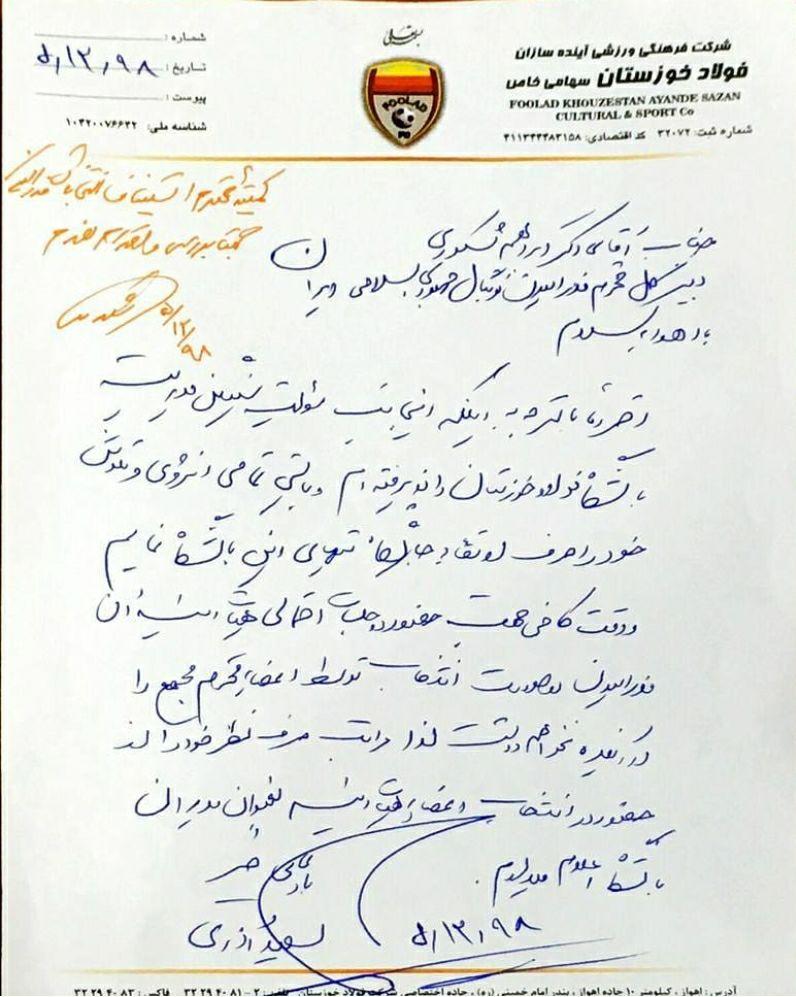 بسمه تعالی
شرکت فرهنگی ورزشی آینده سازان
فولاد خوزستان سهامی خاص
FOOLAD KHOUZESTAN AYANDE SAZAN
CULTURAL & SPORT Co
شماره ثبت: ۳۲۰۷۲ کد اقتصادی: ۴۱۱۳۴۴۴۸۳۱۵۸
FOOLAD
شماره :
تاریخ : ۵,۱۲,۹۸
پیوست :
شناسه ملی: ۱۰۴۲۰۰۷۶۶۴۲
کمیته محترم استیناف انتخابات فدراسیون
جهت بررسی و اقدام لازم
۵/۱۲/۹۸
جناب آقای دکتر ابراهیم شکوری
دبیر کل محترم فدراسیون فوتبال جمهوری اسلامی ایران
با اهداء سلام
احتراما با توجه به اینکه اینجانب مسئولیت سنگین مدیریت
باشگاه فولاد خوزستان را پذیرفته ام و بایستی تمامی انرژی و تلاش
خود را صرف ارتقاء جایگاه تیمهای این باشگاه نمایم
و وقت کافی جهت حضور در جلسات احتمالی هیات رئیسه آن
فدراسیون در صورت انتخاب توسط اعضاء محترم مجمع را
در آینده نخواهم داشت لذا مراتب صرف نظر خود را از
حضور در انتخاب اعضاء هیات رئیسه بعنوان مدیران
باشگاه اعلام میدارم.
سعید آذری
۵,۱۲,۹۸
آدرس : اهواز ، کیلومتر ۱۰ جاده اهواز ، بندر امام خمینی (ره) ، جاده اختصاصی شرکت فولاد خوزستان تلفن: ۲ - ۸۱ ۴۰ ۲۹ ۳۲ فاکس: ۸۳ ۴۰ ۲۹ ۳۲